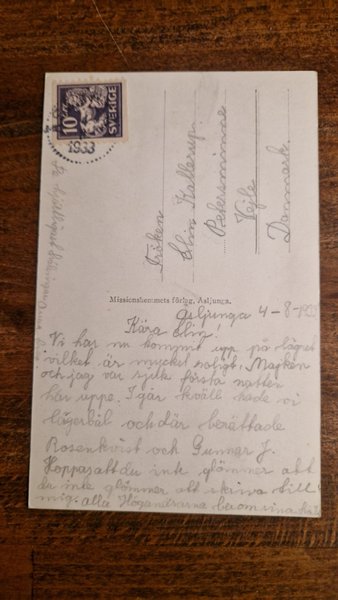 10
SVERIGE
1933
Fröken
Elin Kallerup.
Petersminne
Vejle
Danmark.
Missionshemmets förlag, Asljunga.
Asljunga 4-8-1933
Kära Elin!
Vi har nu kommit upp på lägret
vilket är mycket roligt. Majken
och jag var sjuk första natten
här uppe. I går kväll hade vi
lägerbål och där berättade
Rosenkvist och Gunnar J.
Hoppas att du inte glömmer att
du inte glömmer att skriva till
mig. alla